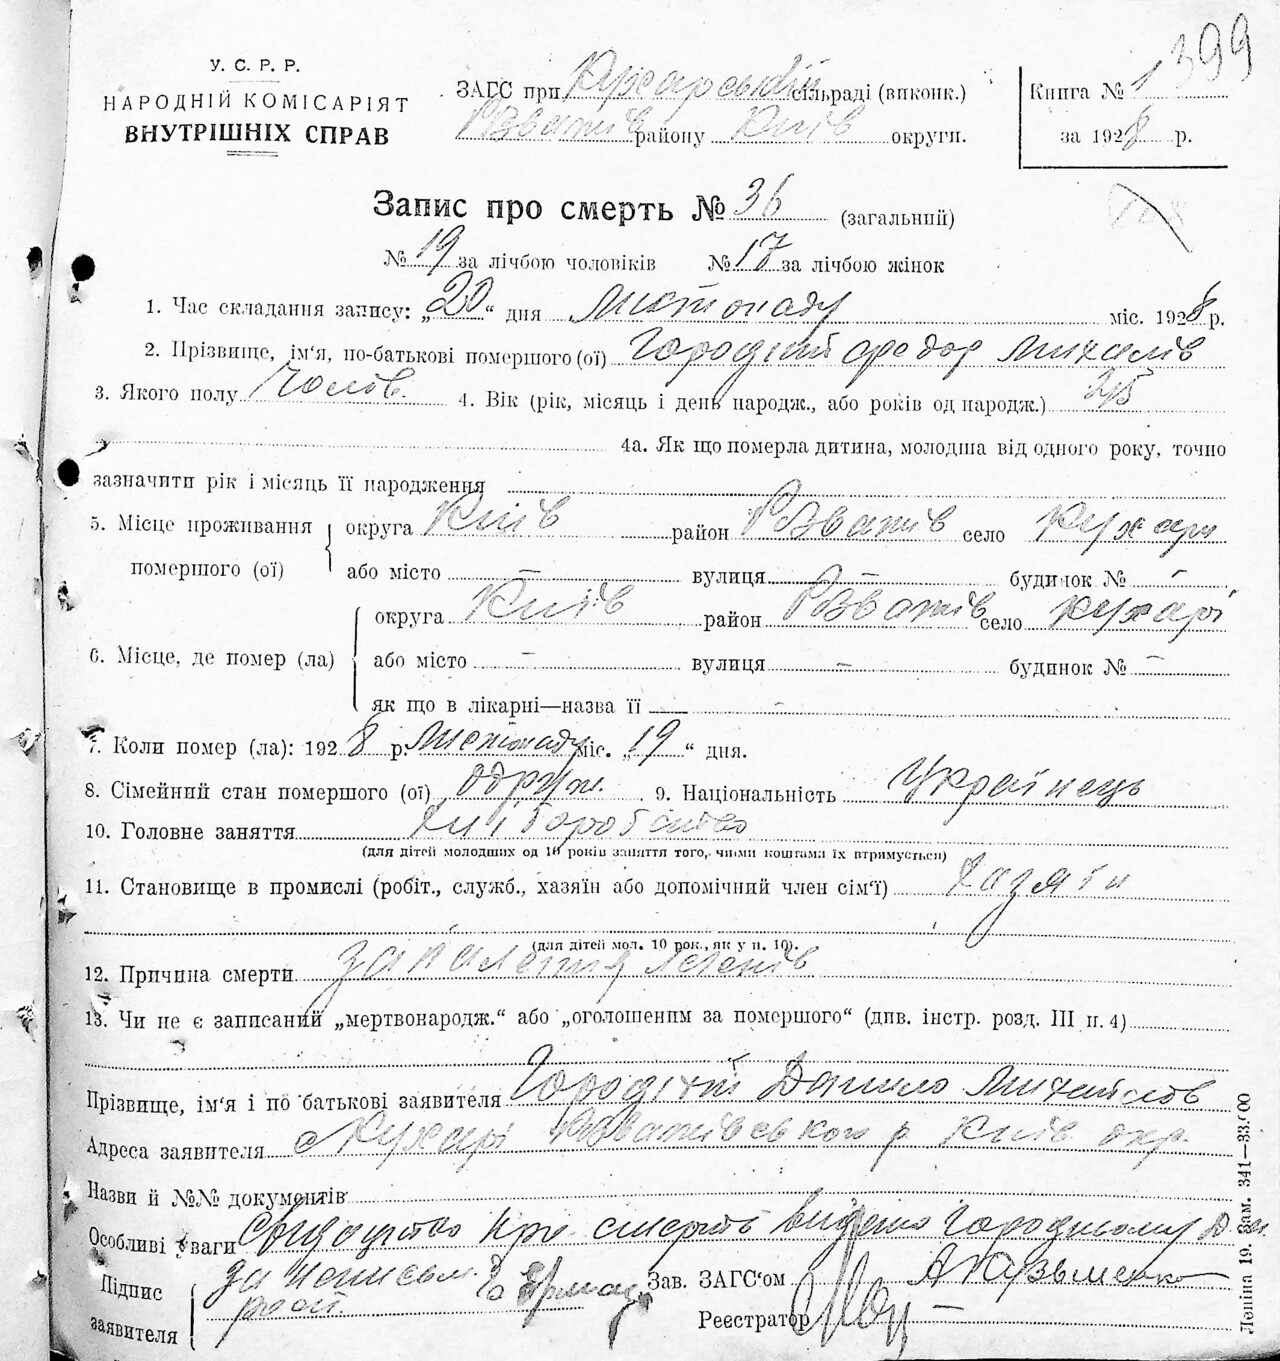 399
У. С. Р. Р.
НАРОДНІЙ КОМІСАРІЯТ
ВНУТРІШНІХ СПРАВ
ЗАГС при Кухарській сільраді (виконк.)
Розважів району Київ округи.
Книга № 1
за 1928 р.
Запис про смерть № 36 (загальний)
№ 19 за лічбою чоловіків № 17 за лічбою жінок
1. Час складання запису: „20“ дня Листопаду міс. 1928 р.
2. Прізвище, ім'я, по-батькові помершого (ої) Городній Федор Михалів
3. Якого полу Чолов. 4. Вік (рік, місяць і день народж., або років од народж.)
4а. Як що померла дитина, молодша від одного року, точно
зазначити рік і місяць її народження
5. Місце проживання помершого (ої) округа Київ район Розважів село Кухари
або місто — вулиця — будинок № —
6. Місце, де помер (ла) округа Київ район Розважів село Кухарі
або місто — вулиця — будинок № —
як що в лікарні—назва її —
7. Коли помер (ла): 1928 р. Листопаду міс. „19“ дня.
8. Сімейний стан помершого (ої) одруж. 9. Національність Українець
10. Головне заняття Хліборобство
(для дітей молодших од 10 років заняття того, чиїми коштами їх втримується)
11. Становище в промислі (робіт., служб., хазяїн або допомічний член сім'ї) Хазяїн
(для дітей мол. 10 рок., як у п. 10).
12. Причина смерти запалення легенів
13. Чи не є записаний „мертвонародж.“ або „оголошеним за помершого“ (див. інстр. розд. III п. 4)
Прізвище, ім'я і по батькові заявителя Городній Данило Михайлов
Адреса заявителя с Кухарі Розважівського р. Київ окр.
Назви й №№ документів
Особливі уваги Свидоцтво про смерть видано Городньому Д. М.
Підпис заявителя за неписьм.
Зав. ЗАГС'ом А Кузьменко
Реєстратор
Леніна 19. Зам. 341—33.000